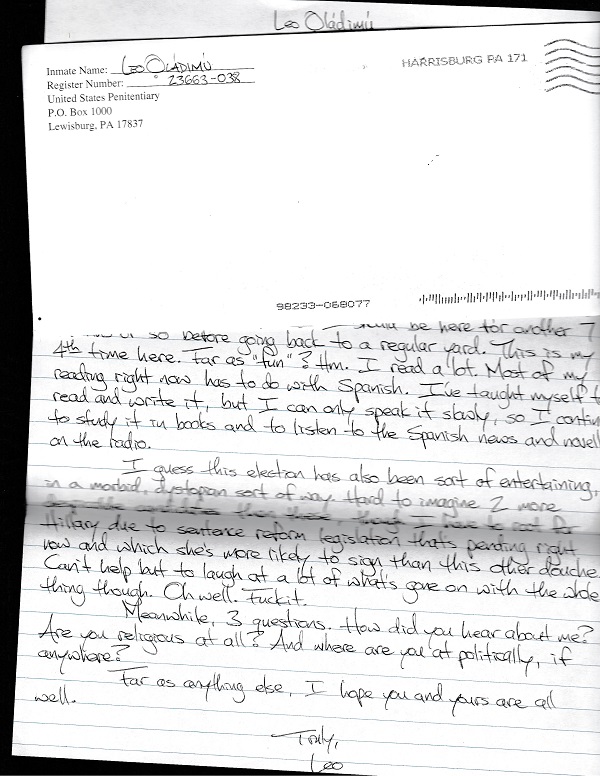 Leo Oládimú
Inmate Name: Leo Oládimú
Register Number: 23663-038
United States Penitentiary
P.O. Box 1000
Lewisburg, PA 17837
HARRISBURG PA 171
98233-068077
be here for another 7
so before going back to a regular yard. This is my
4th time here. Far as "fun"? Hm. I read a lot. Most of my
reading right now has to do with Spanish. I've taught myself t
read and write it, but I can only speak it slowly, so I contin
to study it in books and to listen to the Spanish news and novel
on the radio.
I guess this election has also been sort of entertaining,
in a morbid, dystopian sort of way. Hard to imagine 2 more
Hillary due to sentence reform legislation that's pending right
now and which she's more likely to sign than this other douche.
Can't help but to laugh at a lot of what's gone on with the whole
thing though. Oh well. Fuckit.
Meanwhile, 3 questions. How did you hear about me?
Are you religious at all? And where are you at politically, if
anywhere?
Far as anything else, I hope you and yours are all
well.
Truly,
Leo